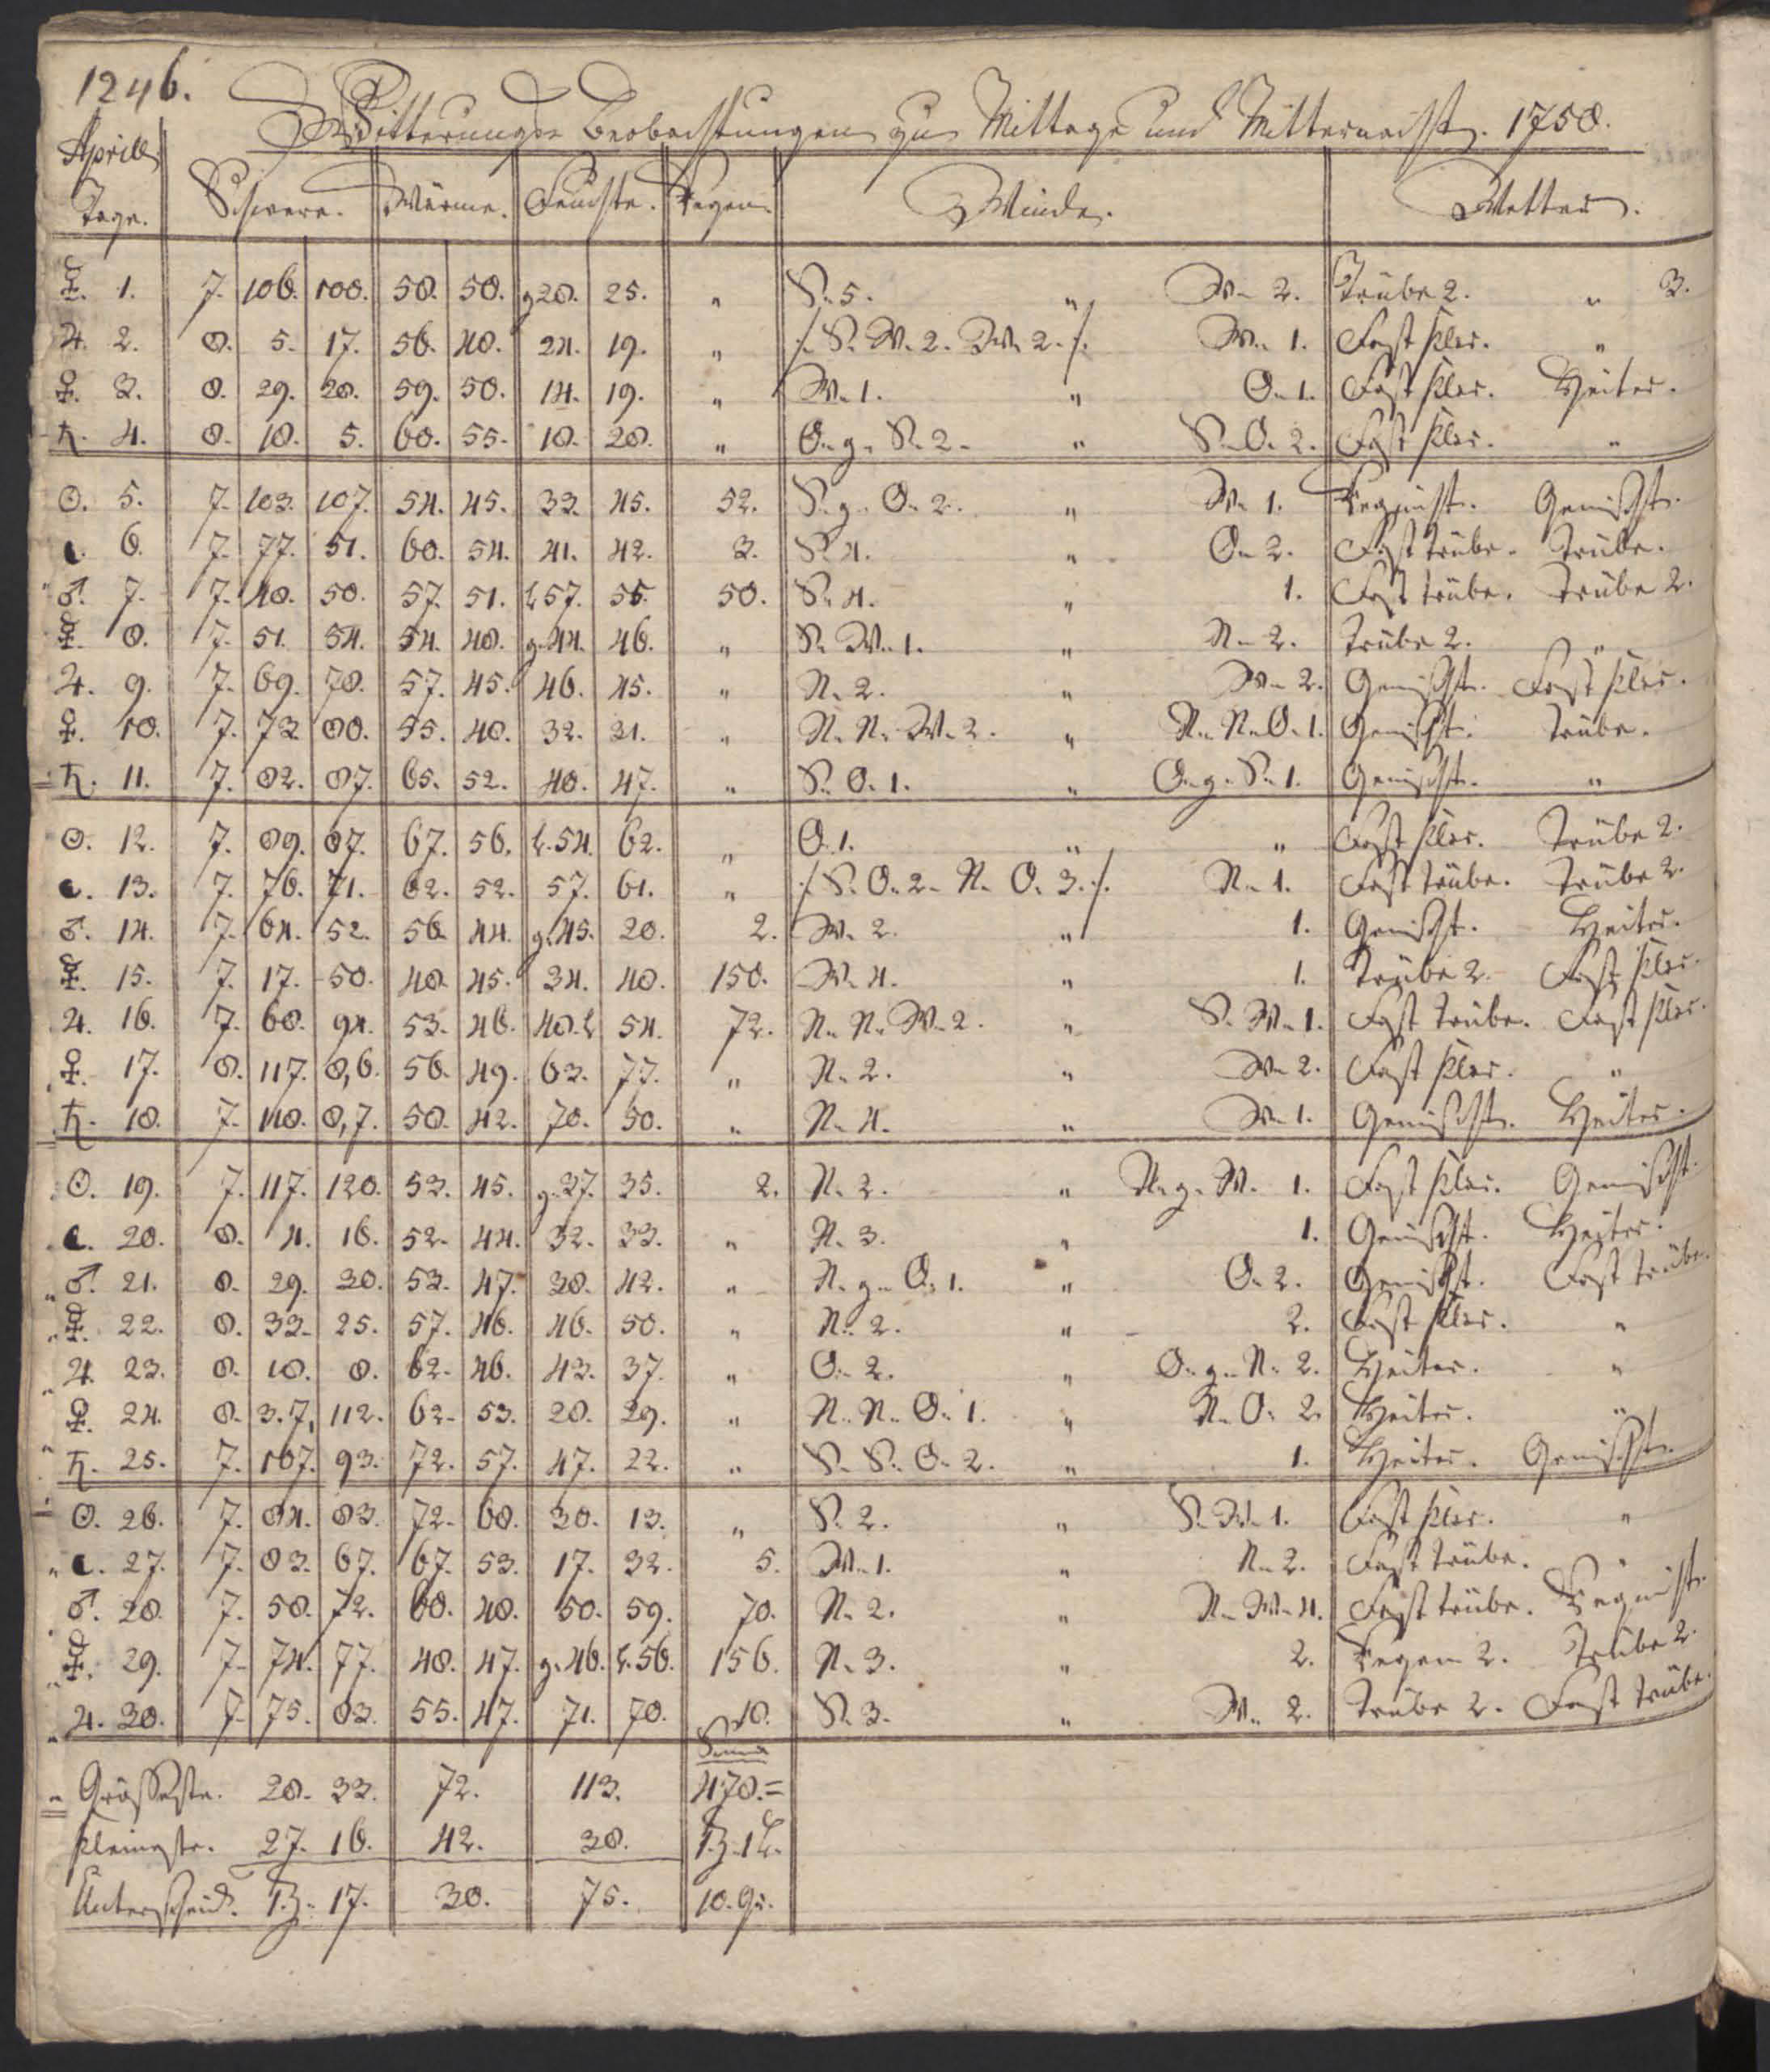 1246.
Witterungs Beobachtungen zu Mittage und Mitternacht. 1758.
Aprill
Tage. Schwere. Wärme. Feuchte. Regen. Winde. Wetter.
☿. 1. 7. 106. 108. 58. 50. g 28. 25. " S. 5. " W. 2. Trübe 2. " 3.
♃. 2. 8. 5. 17. 56. 48. 24. 19. " ./. S. W. 2. W. 2. ./. W. 1. Fast klar. "
♀. 3. 8. 29. 28. 59. 50. 14. 19. " W. 1. " O. 1. Fast klar. Heiter.
♄. 4. 8. 18. 5. 60. 55. 18. 28. " O. g. S. 2. " S. O. 2. Fast klar. "
☉. 5. 7. 103. 107. 54. 45. 33. 45. 52. S. g. O. 2. " W. 1. Regnicht. Gemischt.
☾. 6. 7. 77. 51. 60. 54. 41. 42. 3. S. 4. " O. 2. Fast trübe. Trübe.
♂. 7. 7. 48. 50. 57. 51. 57. 55. 50. S. 4. " 1. Fast trübe. Trübe 2.
☿. 8. 7. 51. 54. 54. 48. g. 44. 46. " S. W. 1. " N. 2. Trübe 2. "
♃. 9. 7. 69. 78. 57. 45. 46. 45. " N. 2. " W. 2. Gemischt. Fast klar.
♀. 10. 7. 73. 80. 55. 48. 32. 31. " N. N. W. 2. " N. N. O. 1. Gemischt. Trübe.
♄. 11. 7. 82. 87. 65. 52. 48. 47. " S. O. 1. " O. g. S. 1. Gemischt. "
☉. 12. 7. 89. 87. 67. 56. 54. 62. " O. 1. " " Fast klar. Trübe 2.
☾. 13. 7. 76. 71. 62. 52. 57. 61. " ./. S. O. 2. N. O. 3. ./. N. 1. Fast trübe. Trübe 2.
♂. 14. 7. 64. 52. 56. 44. g. 45. 20. 2. W. 2. " 1. Gemischt. Heiter.
☿. 15. 7. 17. 50. 48. 45. 34. 48. 150. W. 4. " 1. Trübe 2. Fast klar.
♃. 16. 7. 68. 94. 53. 46. 48. 54. 72. N. N. W. 2. " S. W. 1. Fast trübe. Fast klar.
♀. 17. 8. 117. 8,6. 56. 49. 63. 77. " N. 2. " W. 2. Fast klar. "
♄. 18. 7. 118. 8,7. 50. 42. 70. 50. " N. 4. " W. 1. Gemischt. Heiter.
☉. 19. 7. 117. 120. 53. 45. g. 37. 35. 2. N. 2. " N. g. W. 1. Fast klar. Gemischt.
☾. 20. 8. 4. 16. 52. 44. 32. 33. " N. 3. " 1. Gemischt. Heiter.
♂. 21. 8. 29. 30. 53. 47. 38. 42. " N. g. O. 1. " O. 2. Gemischt. Fast trübe.
☿. 22. 8. 33. 25. 57. 46. 46. 50. " N. 2. " 2. Fast klar. "
♃. 23. 8. 18. 8. 62. 46. 43. 37. " O. 2. " O. g. N. 2. Heiter. "
♀. 24. 8. 3. 7, 112. 62. 53. 28. 29. " N. N. O. 1. " N. O. 2. Heiter. "
♄. 25. 7. 107. 93. 72. 57. 47. 22. " S. S. O. 2. " 1. Heiter. Gemischt.
☉. 26. 7. 84. 83. 72. 60. 30. 13. " S. 2. " S. W. 1. Fast klar. "
☾. 27. 7. 83. 67. 67. 53. 17. 32. 5. W. 1. " N. 2. Fast trübe. "
♂. 28. 7. 58. 72. 60. 48. 50. 59. 70. N. 2. " N. W. 4. Fast trübe. Regnicht.
☿. 29. 7. 74. 77. 48. 47. g. 46. 56. 156. N. 3. " 2. Regen 2. Trübe 2.
♃. 30. 7. 75. 83. 55. 47. 71. 70. 10. S. 3. " W. 2. Trübe 2. Fast trübe.
Suma
Grösseste. 28. 33. 72. 113. 478.=
Kleinste. 27. 16. 42. 38.
Unterscheid. 1 z. 17. 30. 75. 10. Gr.